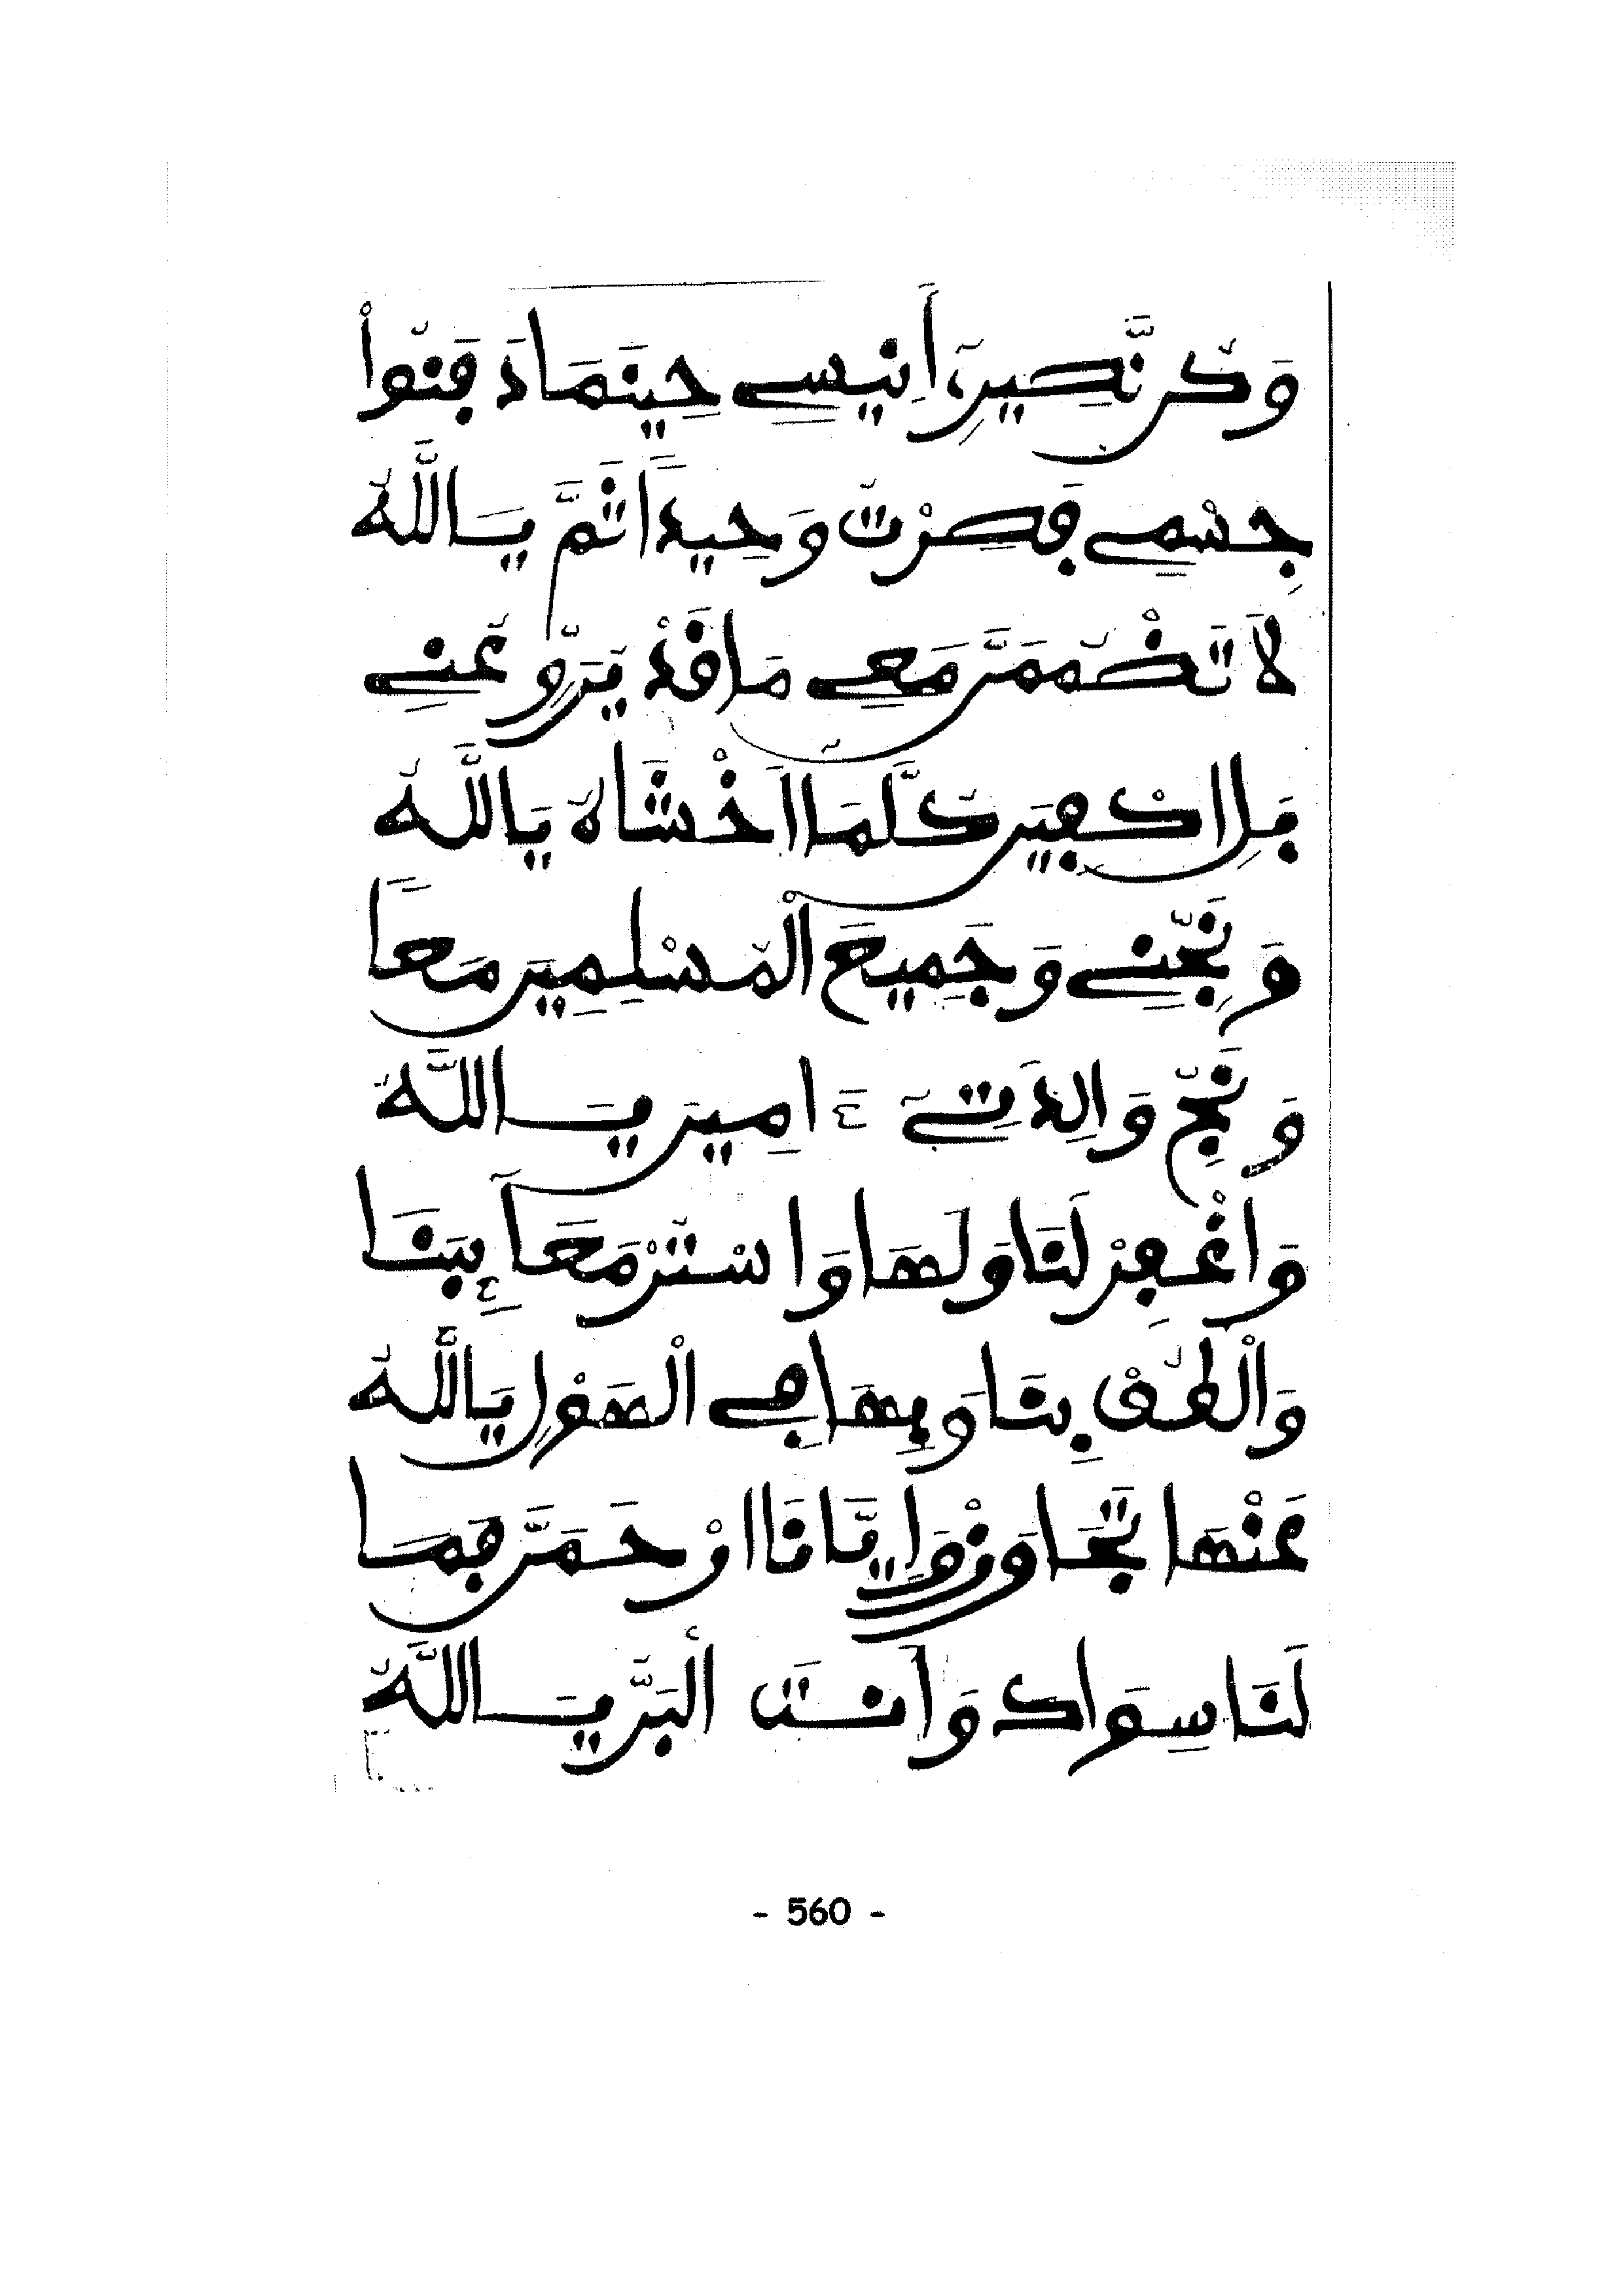 وَكُن نَّصِيرِىٓ أَنِيسِے حِينَمَا دَفَنُواْ
جِسْمِے فَصِرْتُ وَحِيداً ثُمَّ يَا اللَّهُ
لاَ تَضْمُمَنَّ مَعِے مَا قَدْ يُرَوِّعُنِے
بَلِ اكْفِيَن كُلَّمَا اَخْشَاهُ يَا اللَّهُ
وَنَجِّنِے وَجَمِيعَ الْمُسْلِمِينَ مَعاً
وَنَجِّ وَالِدَتِےٓ ءَامِينَ يَا اللَّهُ
وَاغْفِرْ لَنَا وَلَهَا وَاسْتُرْ مَعَآئِبَنَا
وَالْطُفْ بِنَا وَبِهَا فِے الْهَوْلِ يَا اللَّهُ
عَنْهَا تَجَاوَزْ وَإِيَّانَا ارْحَمَنَّ فَمَا
لَنَا سِوَاكَ وَأَنتَ الْبَرُّ يَا اللَّهُ
- 560 -